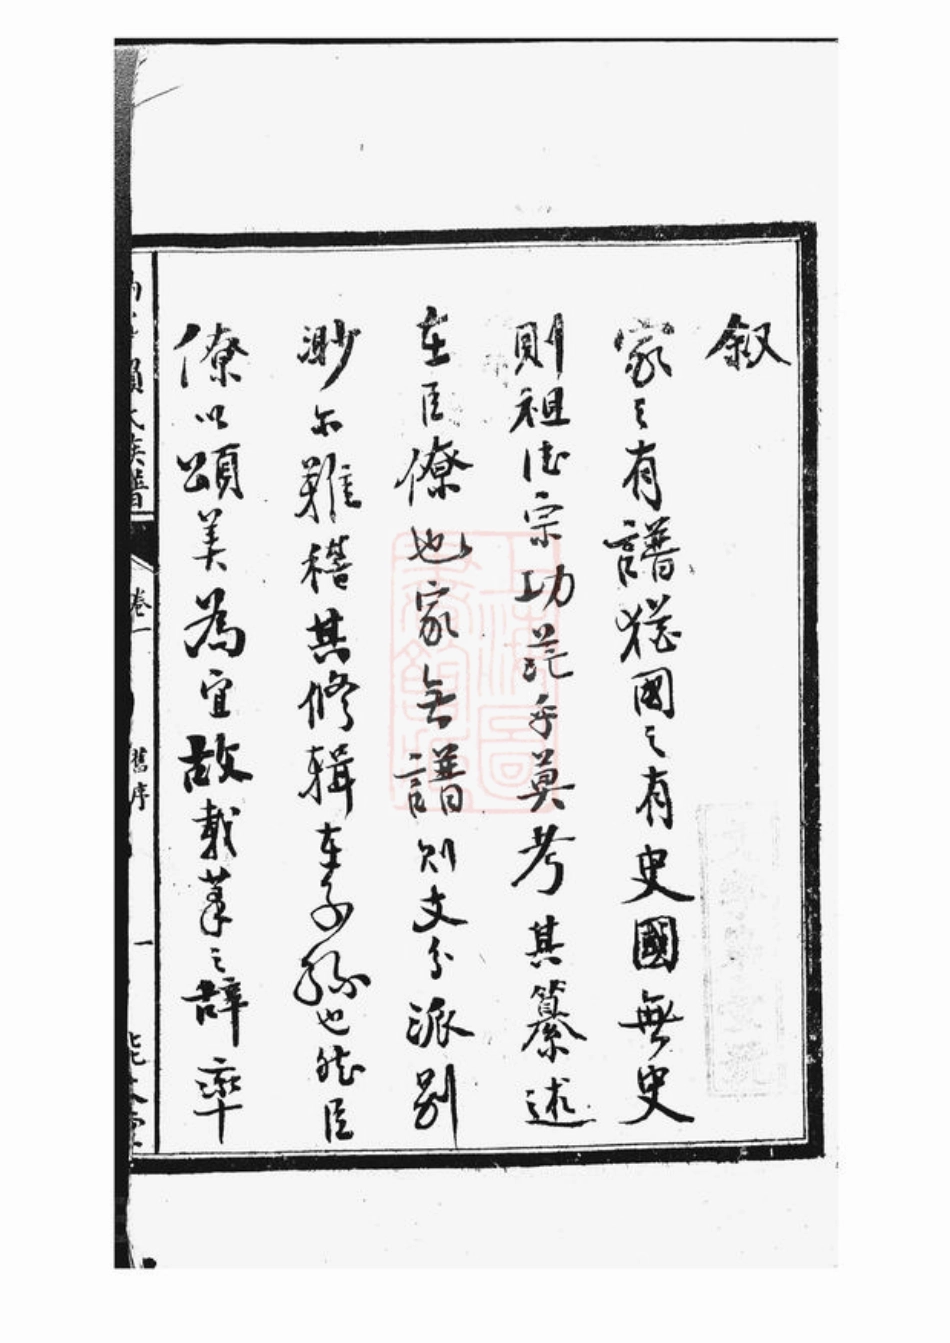 叙
家之有譜猶國之有史國無史
則祖德宗功茫乎莫考其纂述
在臣僚也家無譜則支分派別
渺而難稽其修輯在子孫也然臣
僚以頌美為宜故載筆之辞率
賴氏族譜
卷一
舊序
一
上海圖書館藏